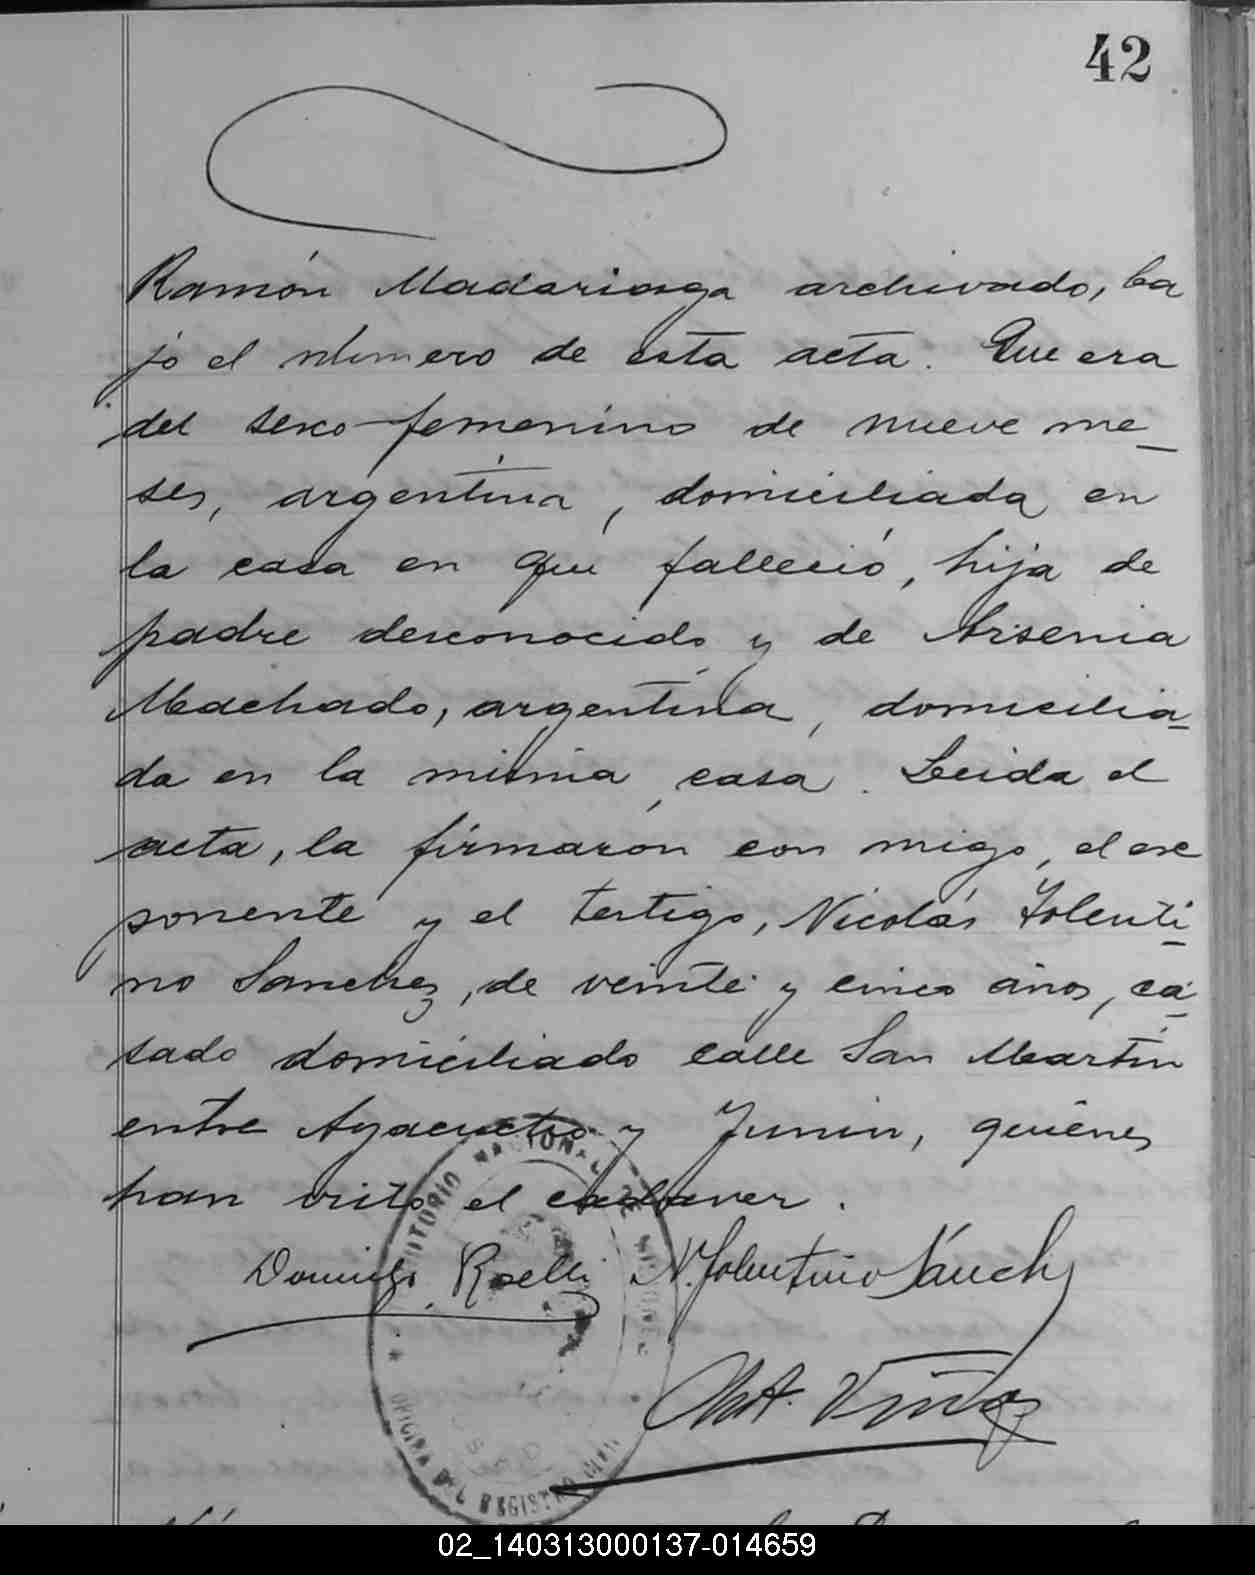 42
Ramón Madariaga archivado, ba
jo el número de esta acta. Que era
del sexo femenino de nueve me_
ses, argentina, domiciliada en
la casa en que falleció, hija de
padre desconocido y de Arsenia
Machado, argentina, domicilia_
da en la misma casa. Leida el
acta, la firmaron con migo, el ex
ponente y el testigo, Nicolás Tolenti_
no Sanchez, de veinte y cinco años, ca_
sado domiciliado calle San Martín
entre Ayacucho y Junin, quienes
han visto el cadaver.
Domingo Roelli N. Tolentino Sánchez
TERRITORIO NACIONAL DE MISIONES
OFICINA DEL REGISTRO CIVIL
02_140313000137-014659